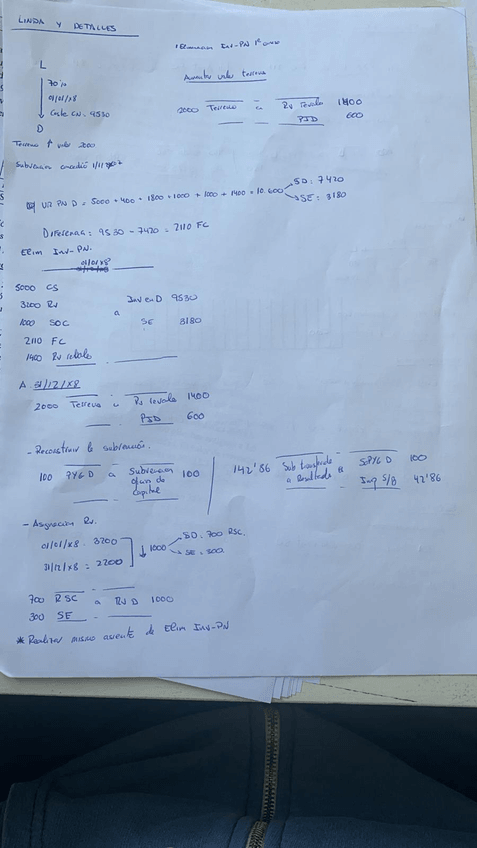 LINDA Y DETALLES
Eliminación Inv-PN 1er año
L
70%
01/01/x8
Coste CN. 9530
D
Aumentar valor terreno
2000 Terreno a Rv revalo 1400
PID 600
Terreno ↑ valor 2000
Subvención
VR PN D = 5000 + 400 + 1800 + 1000 + 1000 + 1400 = 10.600
SD: 7420
SE: 3180
Diferencia: 9530 - 7420 = 2110 FC
Elim Inv-PN.
01/01/x8
5000 CS
3200 Rv
1000 SOC
2110 FC
1400 Rv revalo
a
Inv en D 9530
SE 3180
A 31/12/x8
2000 Terreno a Rv revalo 1400
PID 600
- Reconstruir la subvención.
100 PYG D a Subvención 100
capital
142'86 Sub transferida a Resultado a SPYG D 100
Imp S/B 42'86
- Asignación Rv.
01/01/x8 : 3200
31/12/x8 = 2200
↓ 1000
SD: 700 RSC.
SE: 300
700 RSC a Rv D 1000
300 SE
* Realizar mismo asiento de Elim Inv-PN